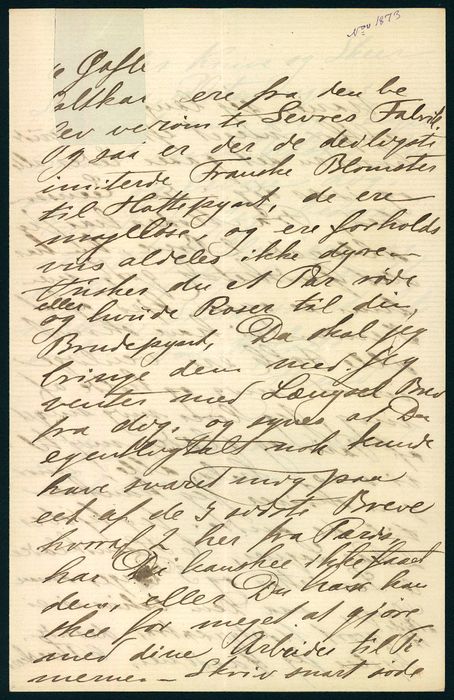 Nov 1873
ere fra den be
rømte Sevres Fabrik.
og saa er der de deiligste
imiterede Franske Blomster
til Hattepynt, de ere
mageløse, og ere forholds
vis aldeles ikke dyre –
Ønsker du et Par røde
eller
og hvide Roser til din
Brudepynt, Da skal jeg
bringe dem med. Jeg
venter med Længsel Brev
fra dig, og synes at Du
egentligtalt nok kunde
have svaret mig paa
eet af de 5 sidste Breve
hvoraf 2 her fra Paris,
har Du kanskee ikke faaet
dem, eller Du har kan
skee for meget at gjøre
med dine Arbeider til Ti
merne. – Skriv snart søde